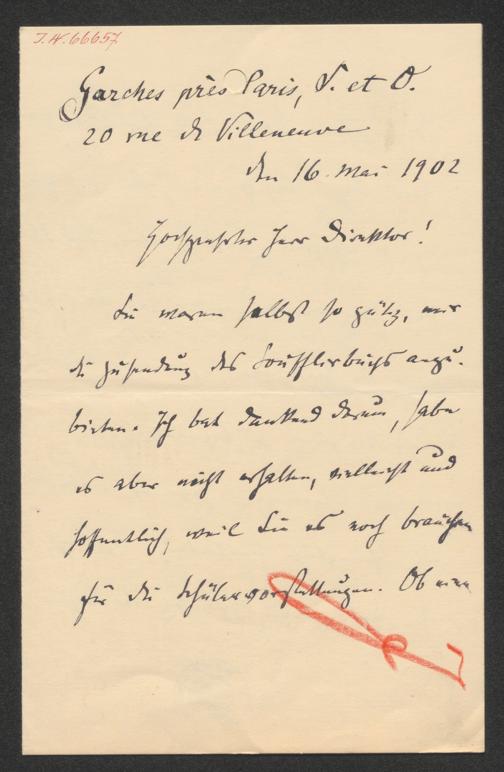 I.N. 66657
Garches près Paris, S. et O.
20 rue de Villeneuve
den 16. Mai 1902
Hochgeehrter Herr Direktor!
Sie waren selbst so gütig, mir
die Zusendung des Soufflirbuchs anzu-
bieten. Ich bat dankend darum, habe
es aber nicht erhalten, vielleicht und
hoffentlich, weil Sie es noch brauchen
für die Schülervorstellungen. Ob man